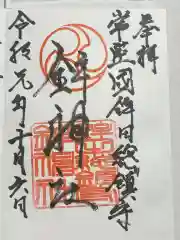 奉拝
常陸国鉾田総鎮守
鉾神社
令和元年十月六日